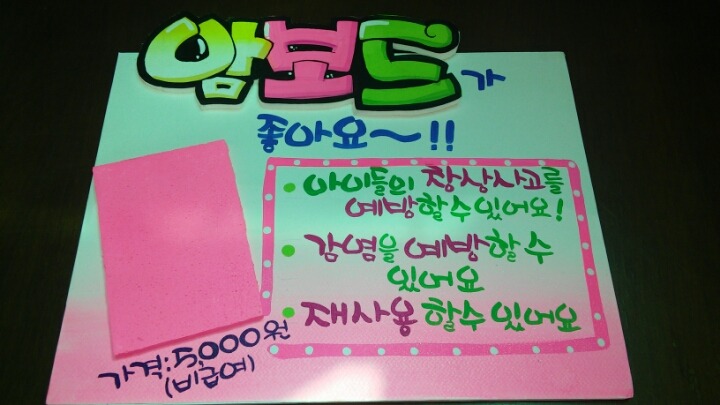 암보드가
좋아요~!!
• 아이들의 창상사고를
예방할수있어요!
• 감염을 예방할수
있어요
• 재사용할수있어요
가격:5,000원
(비급여)